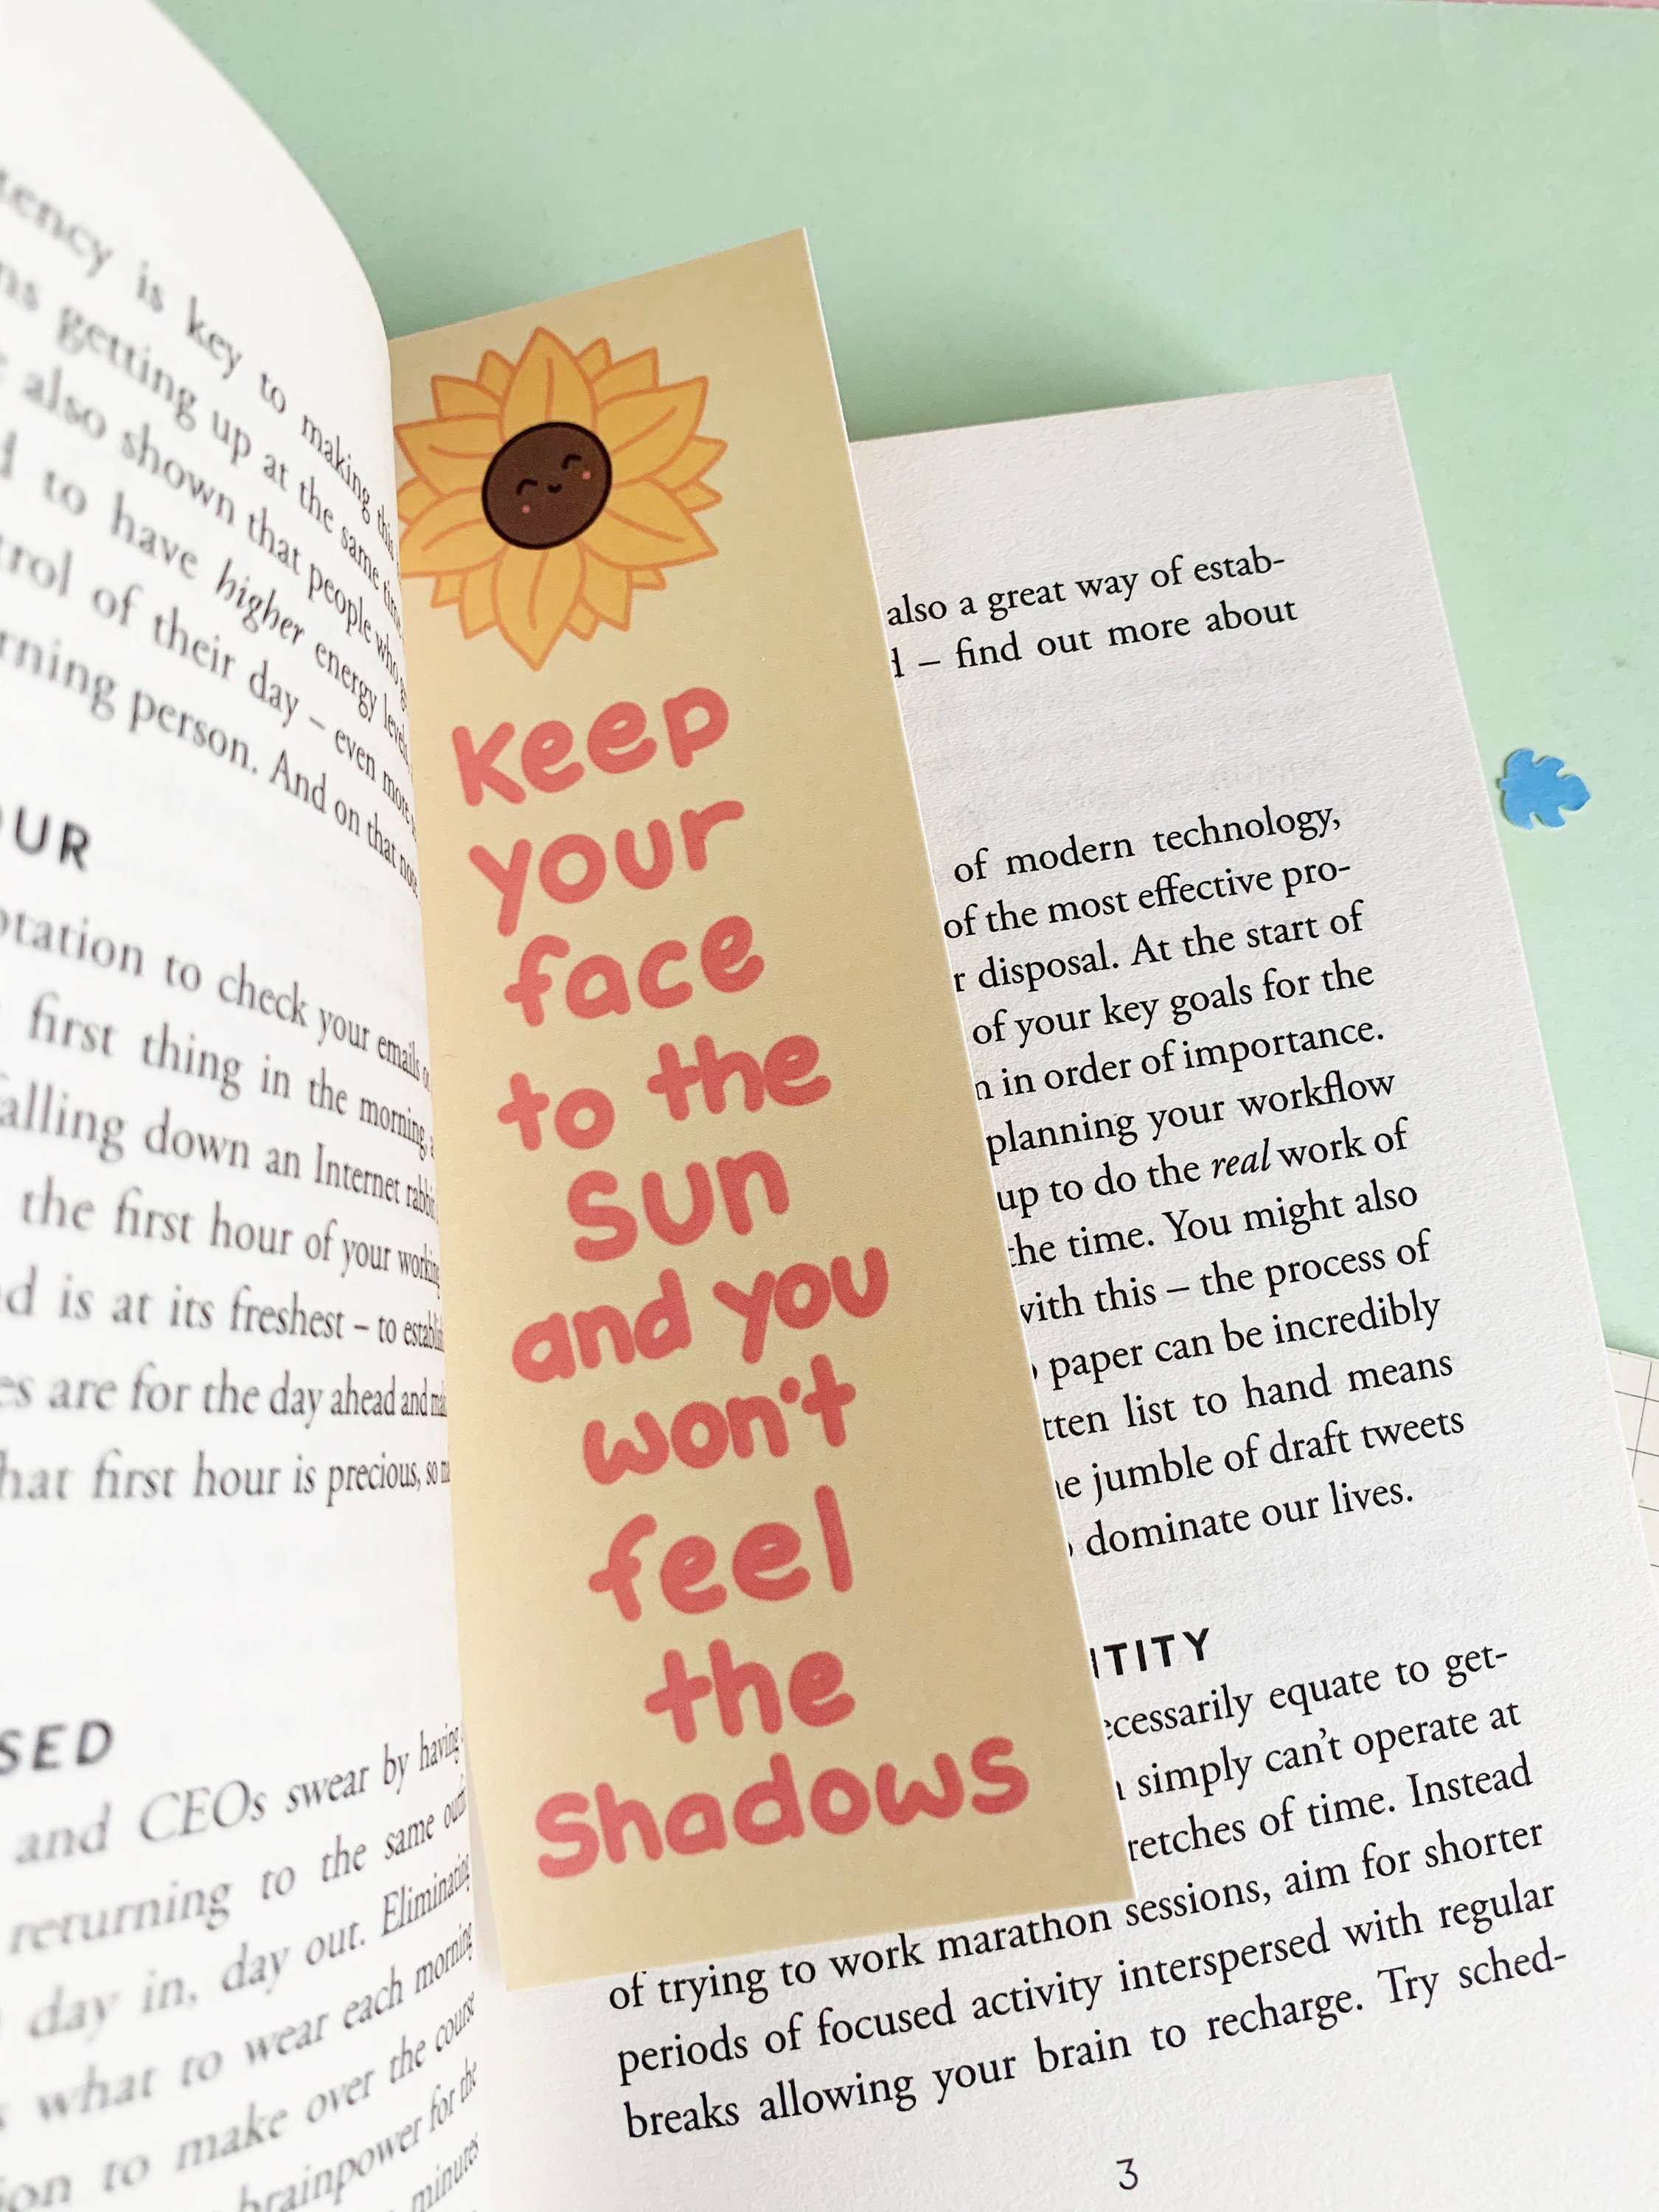 is key to making this
getting up at the same time
also shown that people who
to have higher energy levels
of their day – even more
person. And on that note
to check your emails
first thing in the morning,
down an Internet
the first hour of your working
is at its freshest – to
are for the day ahead and
first hour is precious, so
and CEOs swear by having
returning to the same
day in, day out. Eliminating
what to wear each morning
to make over the course
brainpower for the
minutes
Keep
your
face
to the
Sun
and you
won't
feel
the
Shadows
also a great way of estab-
– find out more about
of modern technology,
of the most effective pro-
disposal. At the start of
of your key goals for the
in order of importance.
planning your workflow
up to do the real work of
the time. You might also
with this – the process of
paper can be incredibly
list to hand means
jumble of draft tweets
dominate our lives.
equate to get-
simply can't operate at
of time. Instead
of trying to work marathon sessions, aim for shorter
periods of focused activity interspersed with regular
breaks allowing your brain to recharge. Try sched-
3